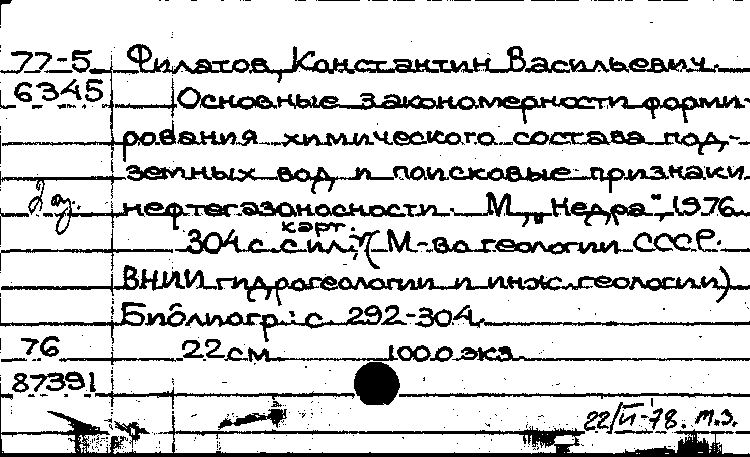 77-5 Филатов, Константин Васильевич.
6345 Основные закономерности форми-
рования химического состава под-
земных вод и поисковые признаки
нефтегазоносности. М., „Недра", 1976
карт.
304 с. с ил.; (М-во геологии СССР.
ВНИИ гидрогеологии и инж. геологии)
Библиогр.: с. 292-304.
76 22 см 1000 экз.
87391
22/VI-78. м.э.